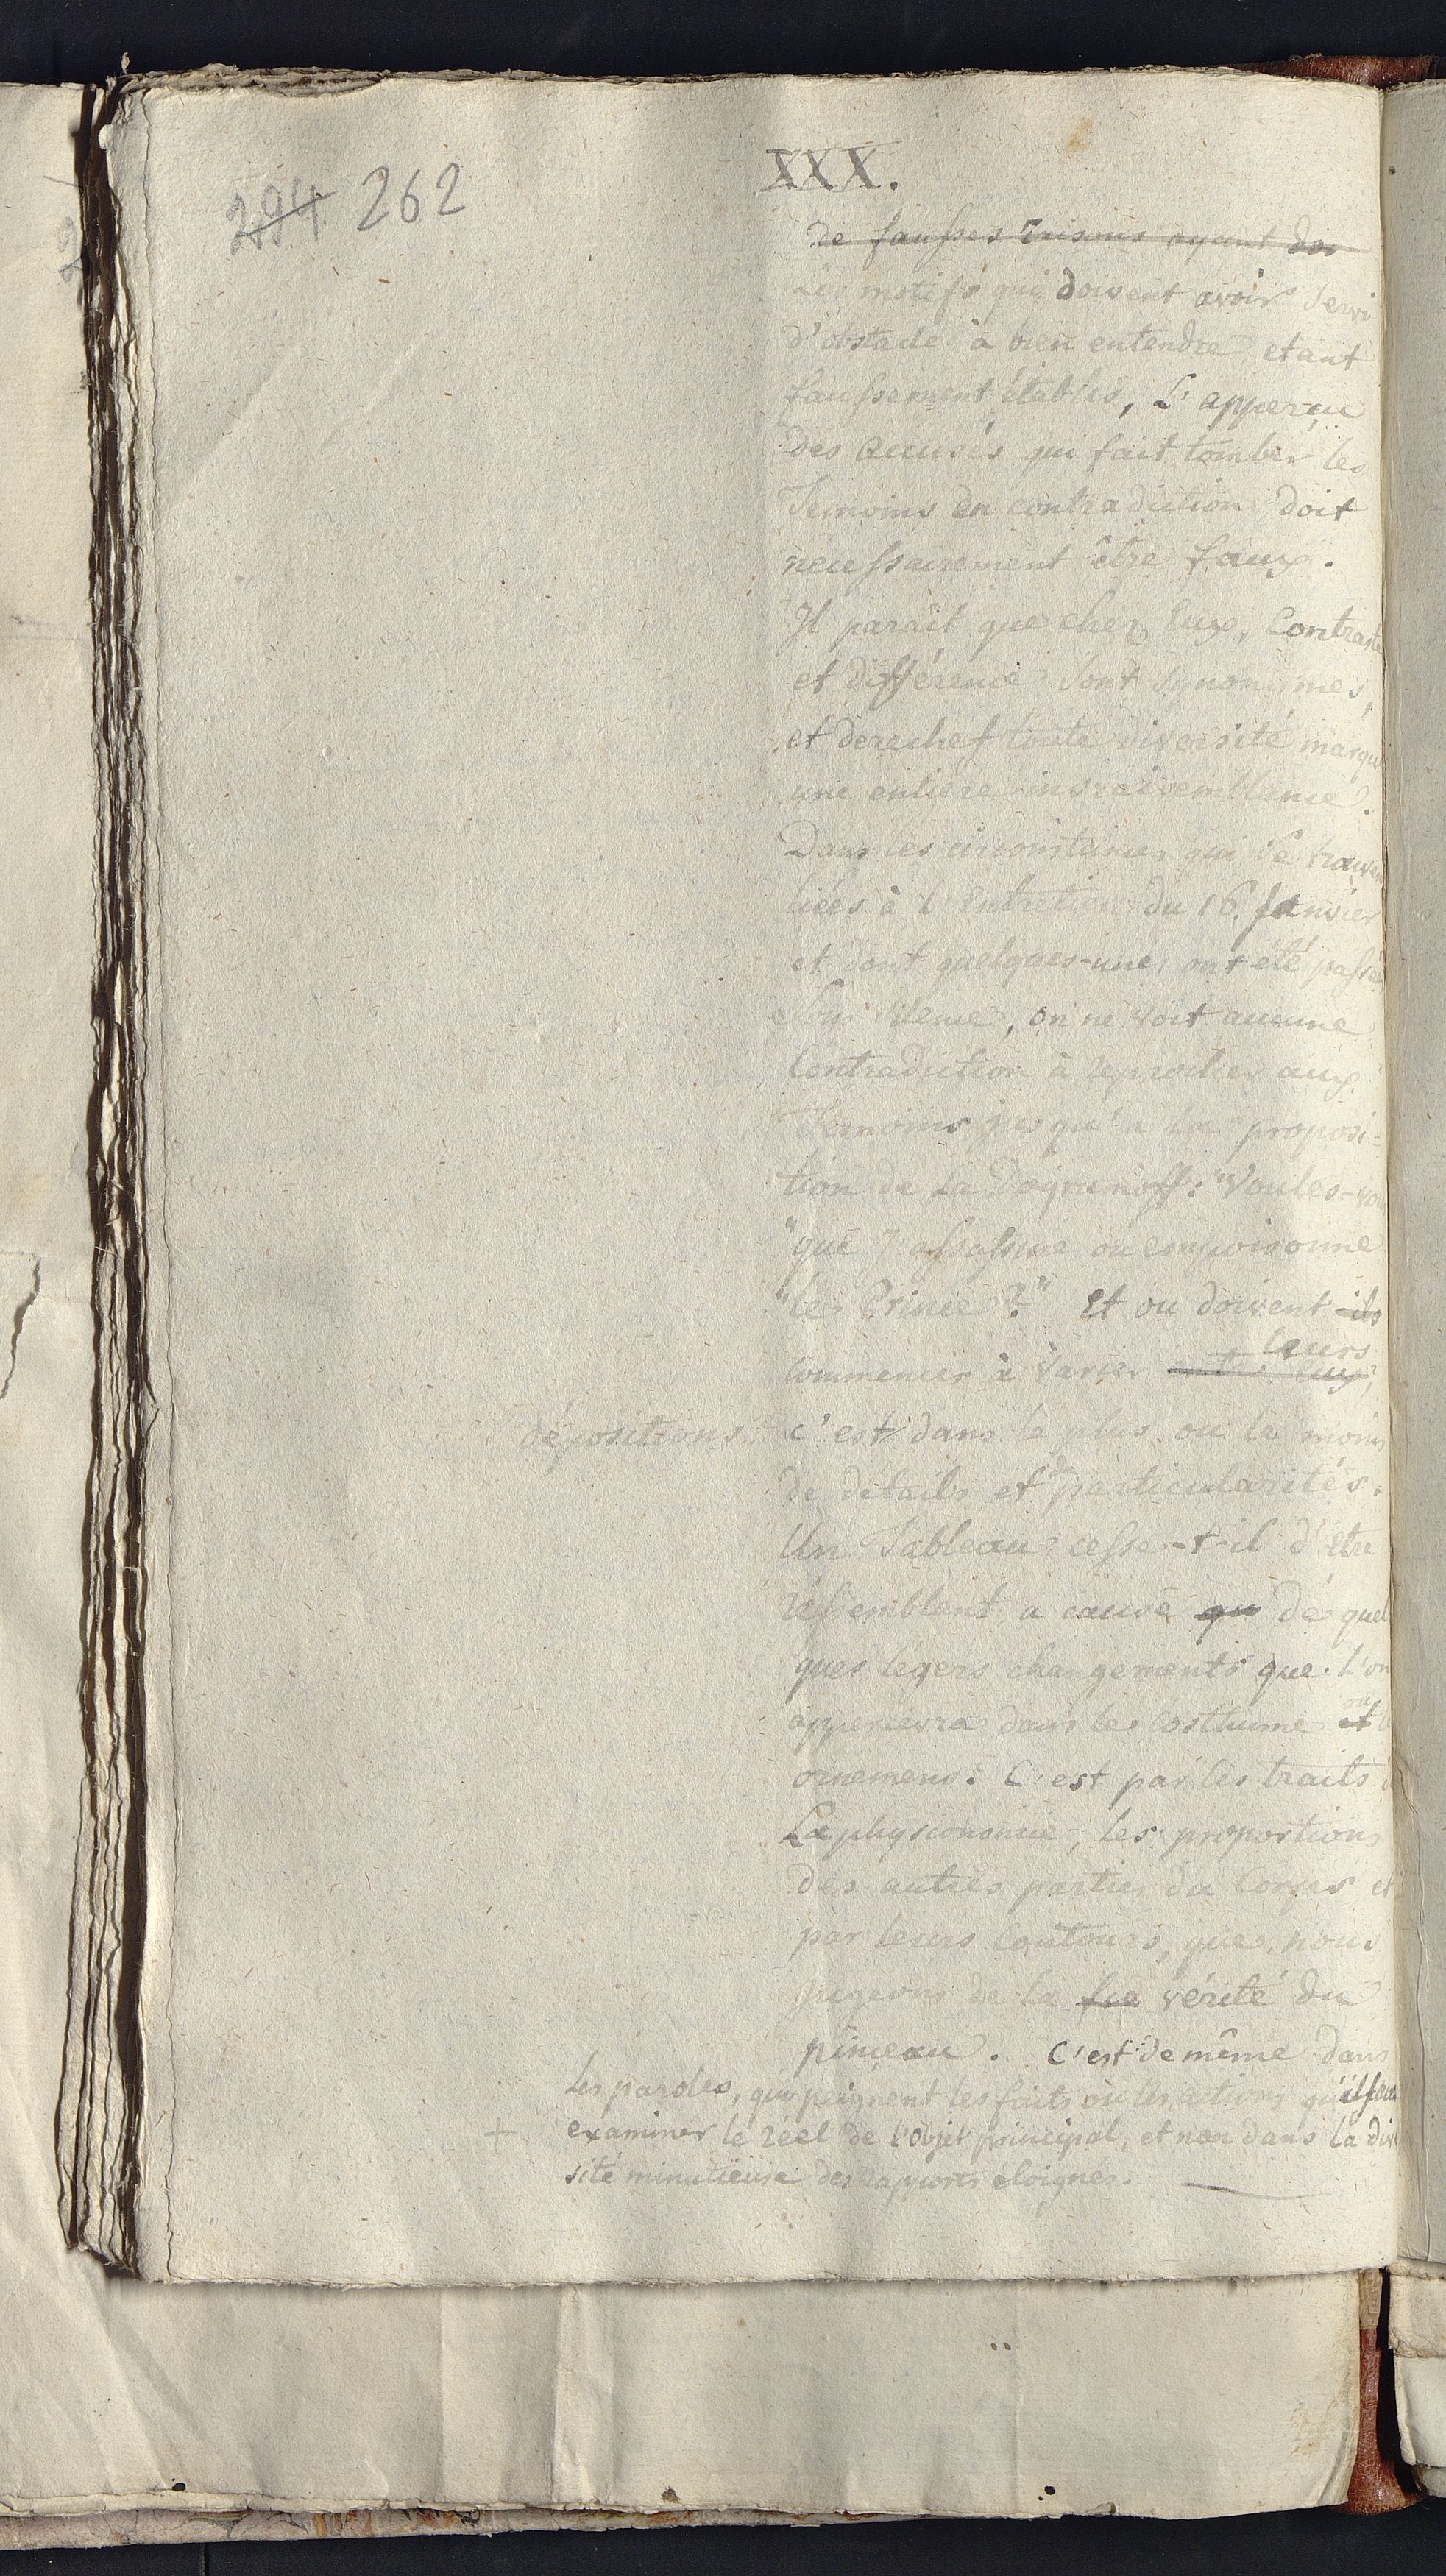 294 262
XXX.
de fausses raisons ayant des
Les motifs qui doivent avoir servi
d'obstacle à bien entendre etant
faussement établis, L'apperçu
des accusés qui fait tomber les
Temoins en contradiction doit
necessairement être faux.
Il parait que chez Eux, Contraste
et différence sont synonymes,
et derechef toute diversité marque
une entiere invraisemblance.
Dans les circonstances qui se trouv
liées à l'Entretien du 16. Janvier
et dont quelques-unes ont été passées
sous silence, on ne voit aucune
Contradiction à reprocher aux
Temoins jusqu'à la proposi=
tion de la Dogrumoff: "Voules-vous
"que j'assassine ou empoisonne
"le Prince?" Et ou doivent ils
leurs
commencer à varier Eux?
dépositions c'est dans le plus ou le moins
de details et de particularités.
Un Tableau cesse-t-il d'etre
ressemblant a cause qu de quel
ques légers changements que L'on
appercevra dans le costhume et
ou
ornemens: C'est par les traits d
La physionomie, les proportions
des autres parties du Corps et
par leurs Contours, que nous
jugeons de la vérité du
pinceau. C'est de même dans
Les paroles, qui peignent les faits ou les actions qu'il faut
+ examiner le réel de l'objet principal, et non dans la div
sité minutieuse des rapports éloignés.